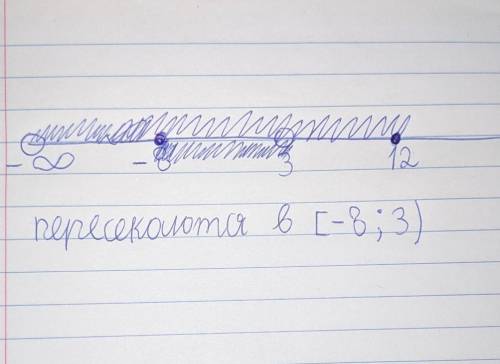 -∞ -8 3 12
пересекаются в [-8; 3)